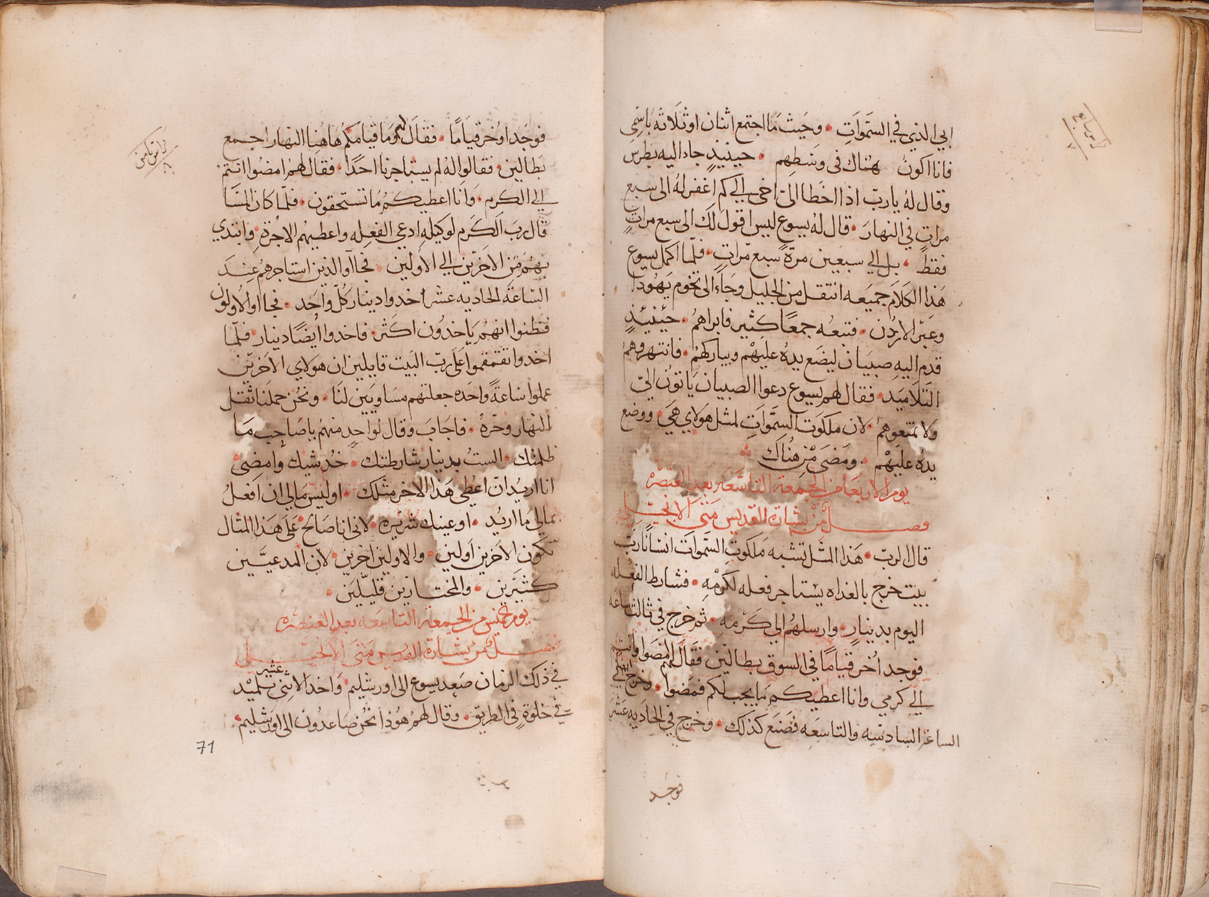 ابي الذي في السموات • وحيث ما اجتمع اثنان او ثلاثه باسمي
فانا اكون هناك في وسطهم • حينيذٍ جاء اليه بطرس
وقال له يارب اذا اخطا اليّ اخي الي كم اغفر له الى سبع
مرات في النهار • قال له يسوع ليس اقول لك الى سبع مرات
فقط • بل الي سبعين مرة سبع مرات • فلما اكمل يسوع
هذا الكلام جميعه انتقل من الجليل وجاء الى تخوم يهودا
وعبر الاردن • فتبعه جمعا كثير فابراهم • حينيذٍ
قدم اليه صبيان ليضع يده عليهم ويباركهم • فانتهروهم
التلاميد • فقال لهم يسوع دعوا الصبيان ياتون اليّ
ولا تمنعوهم • لان ملكوت السموات لمثل هولاي هي • ووضع
يده عليهم • ومضى من هناك
يوم الاربعا من الجمعة التاسعه بعد العنصره
فصل من بشارة القديس متى الانجيلي
قال الرب • هذا المثل تشبه ملكوت السموات انسانا رب
بيت خرج بالغداه يستاجر فعله لكرمه • فشارط الفعله
اليوم بدينار • وارسلهم الي كرمه • ثم خرج في ثالث ساعه
فوجد اخر قياما في السوق بطالين فقال لهم امضوا وانتم
الي كرمي وانا اعطيكم ما يجب لكم فمضوا • وخرج ايضا في
الساعه السادسه والتاسعه فصنع كذلك • وخرج في الحاديه عشر
فوجد
فوجد اخر قياما • فقال لهم ما قيامكم هاهنا النهار اجمع
بطالين • فقالوا له لم يستاجرنا احدا • فقال لهم امضوا انتم
الي الكرم • وانا اعطيكم ما تستحقون • فلما كان المسا
قال رب الكرم لوكيله ادعي الفعله واعطيهم الاجره • وابتدي
بهم من الاخرين الي الاولين • فجاءوا الذين استاجرهم عند
الساعة الحاديه عشر اخدوا دينار كل واحد • فجاءوا الاولون
فظنوا انهم ياخدون اكثر • فاخدوا ايضا دينار • فلما
اخدوا تقمقموا على رب البيت قايلين ان هولاي الاخرين
عملوا ساعة واحده جعلتهم مساويين لنا • ونحن حملنا ثقل
النهار وحره • فاجاب وقال لواحد منهم يا صاحب ما
ظلمتك • الست بدينار شارطتك • خد شيك وامضي
انا اريد ان اعطي هذا الاخر مثلك • اوليس مالي ان افعل
بمالي ما اريد • او عينك شريره • لاني انا صالح • على هذا المثال
تكون الاخرين اولين • والاولين اخرين • لان المدعيين
كثيرين • والمختارين قليلين •
يوم الخميس من الجمعة التاسعه بعد العنصره
فصل من بشارة القديس متى الانجيلي
في ذلك الزمان صعد يسوع الى اورشليم • واخد الاثني عشر تلميد
في خلوة في الطريق • وقال لهم هوذا نحن صاعدون الى اورشليم •
71